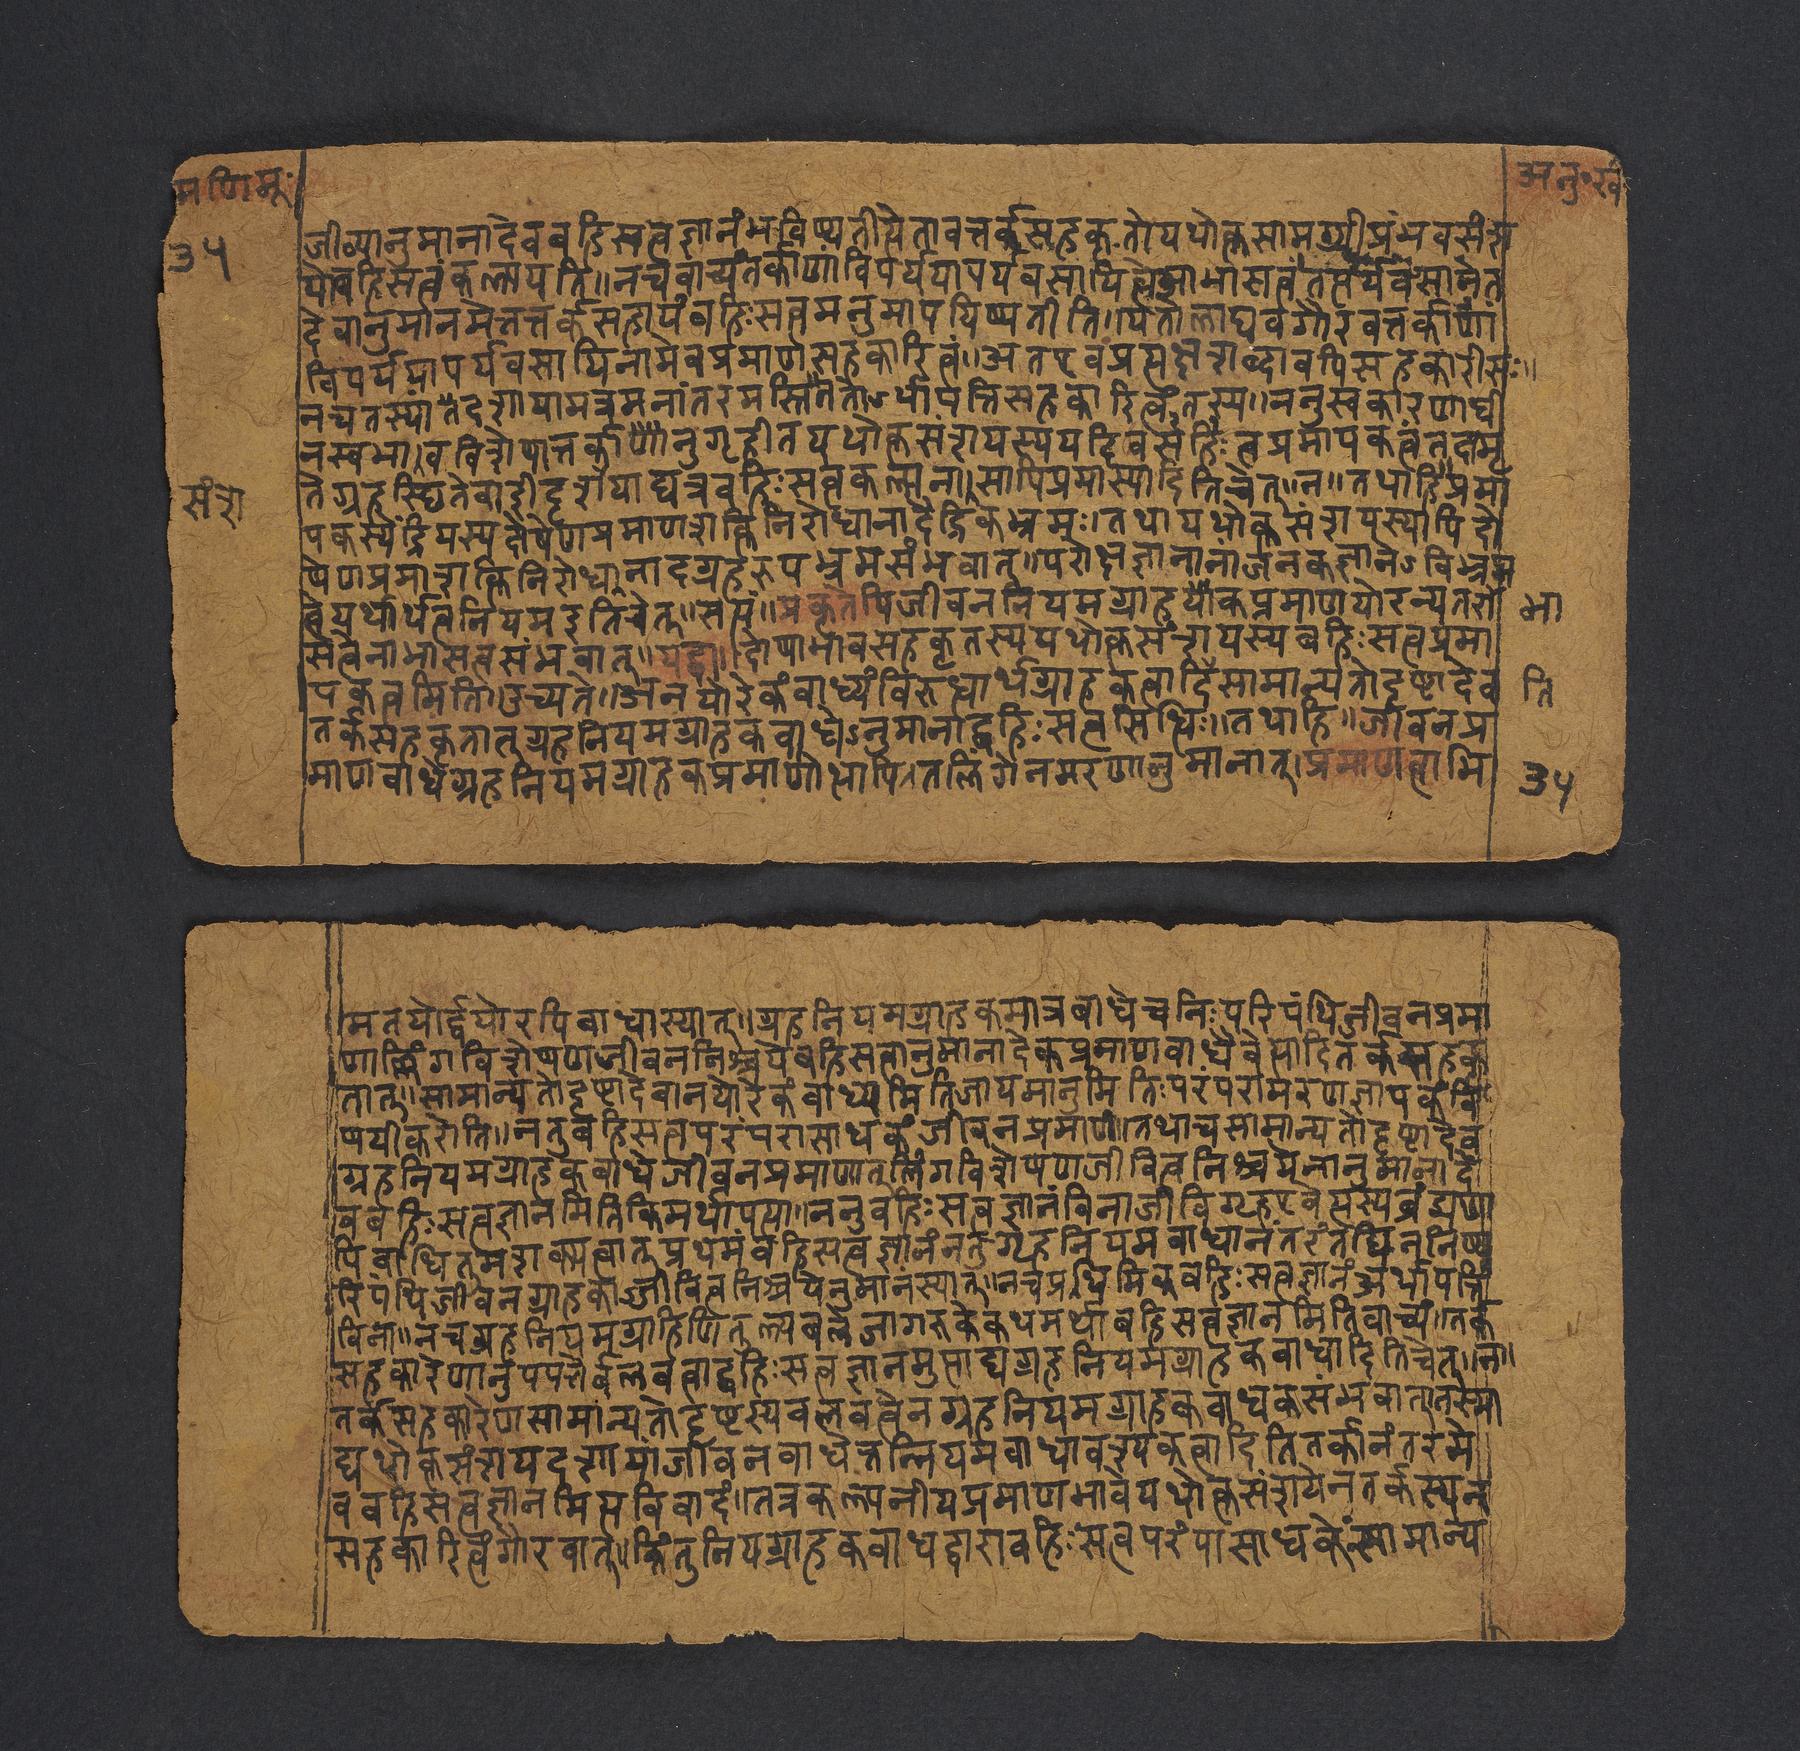 मणिमू॰
अनु॰खं
३५
जीव्यानुमानादेवबहिसत्वज्ञानंभविष्यतीत्येतावत्तर्कसहकृतोयथोक्तसामग्रीप्रभवसंश
योबहिसत्वंकल्पयति॥नचवाच्यंतर्काणांविपर्ययापर्यवसायित्वेआभासत्वंतत्पर्यवसानेत
देवानुमानमेतत्तर्कसहायंबहिःसत्वमनुमापयिष्यतीति॥यतोलाघवगौरवतर्काणां
विपर्ययापर्यवसायिनामेवप्रमाणसहकारित्वं॥अतएवप्रत्यक्षशब्दावपिसहकारीसः॥
नचतस्यांतदशायामत्रमनांतरमस्तितेतोऽर्थापत्तिसहकारित्वंतस्य॥ननुस्वकारणाधी
नस्वभावविशेषात्तर्काणानुगृहीतयथोक्तसंशयस्ययदिबर्सहिःत्वप्रमापकत्वंतदामृ
संशे
तेग्रहस्थितेवाद्दीदृशीयाद्यत्रबहिःसत्वकल्पना॥सापिप्रमास्यादितिचेत्॥न॥तथाहिप्रमा
पकस्येंद्रियस्यदोषेणप्रमाणशक्तिनिरोधानादैंद्रिकभ्रमः॥तथायथोक्तसंशयस्यापिदो
षेणप्रमाशक्तिनिरोधानादग्रहरूपभ्रमसंभवात्॥परोक्षज्ञानानाजनकज्ञानेऽविभ्रम
त्वेयथार्थत्वनियमइतिचेत्॥सत्यं॥प्रकृतेपिजीवननियमग्राहयोकप्रमाणयोरन्यतरा
भा
सत्वेनाभासत्वसंभवात्॥यद्वा॥दोषाभावसहकृतस्ययथोक्तसंशयस्यबहिःसत्वप्रमा
पकत्वमिति॥उच्यते॥अनयोरेकंबाध्यंविरुधार्थग्राहकत्वादितिसामान्यतोदृष्टादेव
ति
तर्कसहकृतात्गृहनियमग्राहकबाधेऽनुमानाद्बहिःसत्वसिधिः॥तथाहि॥जीवनप्र
माणबाधेगृहनियमग्राहकप्रमाणोत्थापि॰तल्लिंगेनमरणानुमानात्॥प्रमाणत्वाभि
३५
मतयोर्द्वयोरपिबाधास्यात्॥गृहनियमग्राहकमात्रबाधेचनिःपरिपंथिजीवनप्रमा
णाल्लिंगविशेषणजीवननिश्चयेबहिसत्वानुमानादेकप्रमाणबाधेवेत्यादितर्कसहकृ
तात्॥सामान्यतोदृष्टादेवानयोरेकंबाध्यमितिजायमानुमितिःपरंपरामरणज्ञापकंवि
षयीकरोति॥नतुबहिसत्वपरपरासाधकंजीवनप्रमाणं॥तथाचसामान्यतोदृष्टादेव
गृहनियमग्राहकबाधेजीवनप्रमाणात्लिंगविशेषणजीवित्वनिश्चयेनानुमानादे
वबहिःसत्वज्ञानमितिकिमर्थापत्या॥ननुबहिःसत्वज्ञानंविनाजीविगृहएवेत्यस्यब्रंद्यणा
पिबाधितुमशक्यत्वात्प्रथमंबहिसत्वज्ञानंनतुगृहनियमबाधानंतरंतद्येननिष्प
रिपंथिजीवनग्राहकाज्जीवित्वनिश्चयेनुमानंस्यात्॥नचप्रथिमिकबहिःसत्वज्ञानंअर्थापत्तिं
विना॥नचगृहनियमग्राहिणितुल्यबलेजागरूकेकथमर्थाबहिसत्वज्ञानमितिवाच्यं॥तर्क
सहकारेणानुपपत्तेर्बलवत्वाद्बहिःसत्वज्ञानमुत्पाद्यगृहनियमग्राहकबाधादितिचेत्॥न॥
तर्कसहकारेणसामान्यतोदृष्टस्यबलवत्वेनगृहनियमग्राहकबाधकसंभवात्॥तस्मा
द्यथोक्तसंशयदशायांजीवनबाधेतन्नियमबाधावश्यकत्वादितितर्कानंतरमे
वबहिसत्वज्ञानमित्यविवादं॥तत्रकल्पनीयप्रमाणभावेयथोक्तसंशयेनतर्कस्यन
सहकारित्वंगौरवात्॥किंतुनियग्राहकबाधद्वाराबहिःसत्वपरंपासाधकेसामान्य